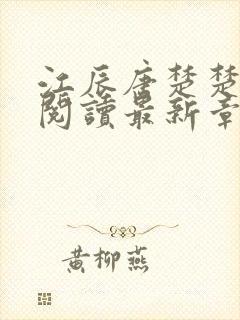 江辰唐楚楚
閱讀最新章
黃柳燕